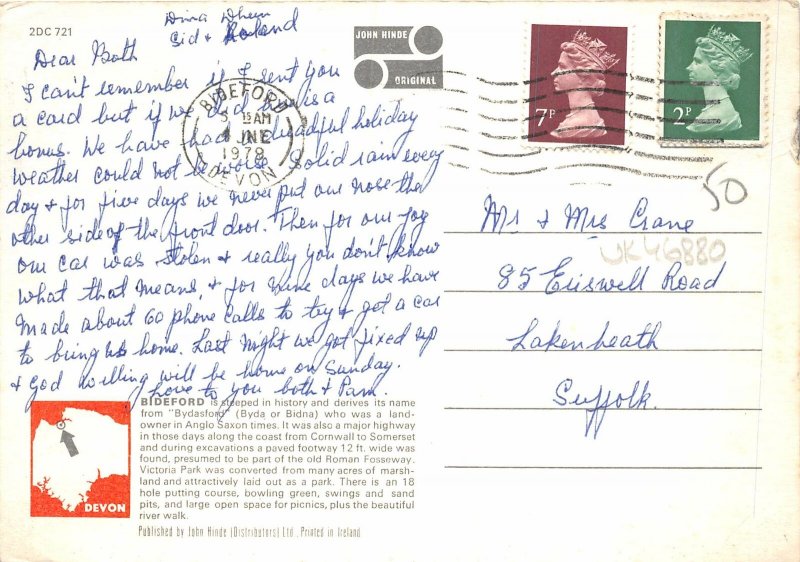 2DC 721
Sid + Roland
Dear Both
I can't remember if I sent you
a card but if we did this is a
bonus. We have had a dreadful holiday
weather could not be worse solid rain every
day & for five days we never put our nose the
other side of the front door. Then for our joy
our car was stolen & really you don't know
what that means, & for nine days we have
made about 60 phone calls to try & get a car
to bring us home. Last night we got fixed up
& God willing will be home on Sunday.
Love to you both & Pam.
JOHN HINDE
ORIGINAL
BIDEFORD
15 AM
1978
DEVON
7P
2P
50
Mr & Mrs Crane
UK46880
85 Eriswell Road
Lakenheath
Suffolk.
BIDEFORD is steeped in history and derives its name
from "Bydasford" (Byda or Bidna) who was a land-
owner in Anglo Saxon times. It was also a major highway
in those days along the coast from Cornwall to Somerset
and during excavations a paved footway 12 ft. wide was
found, presumed to be part of the old Roman Fosseway.
Victoria Park was converted from many acres of marsh-
land and attractively laid out as a park. There is an 18
hole putting course, bowling green, swings and sand
pits, and large open space for picnics, plus the beautiful
river walk.
DEVON
Published by John Hinde (Distributors) Ltd., Printed in Ireland